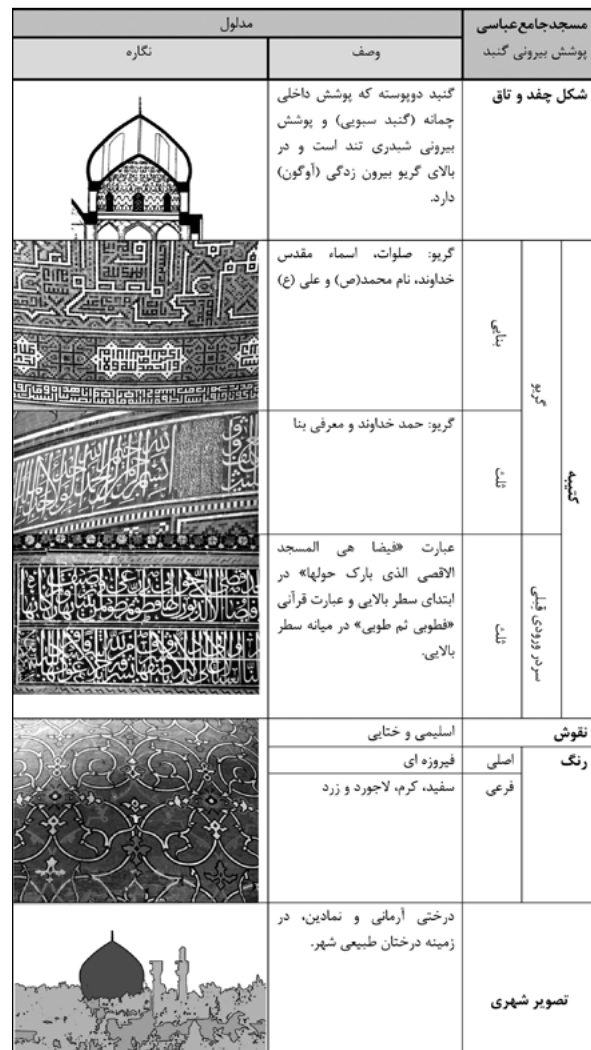 مسجدجامع‌عباسی
مدلول
پوشش بیرونی گنبد
وصف
نگاره
شکل چفد و تاق
گنبد دوپوسته که پوشش داخلی
چمانه (گنبد سبویی) و پوشش
بیرونی شبدری تند است و در
بالای گریو بیرون زدگی (آوگون)
دارد.
کتیبه
گریو
بنایی
گریو: صلوات، اسماء مقدس
خداوند، نام محمد(ص) و علی (ع)
ثلث
گریو: حمد خداوند و معرفی بنا
سردر ورودی قبلی
ثلث
عبارت «فیضا هی المسجد
الاقصی الذی بارک حولها» در
ابتدای سطر بالایی و عبارت قرآنی
«فطوبی ثم طوبی» در میانه سطر
بالایی.
نقوش
اسلیمی و ختایی
رنگ
اصلی
فیروزه ای
فرعی
سفید، کرم، لاجورد و زرد
تصویر شهری
درختی آرمانی و نمادین، در
زمینه درختان طبیعی شهر.